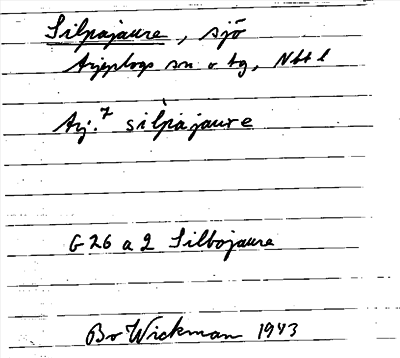 Silpajaure, sjö
Arjeplogs sn o tg, Nbtl
Arj. 7 sìlpajaure
G 26 a 2 Silbojaure
Bo Wickman 1943